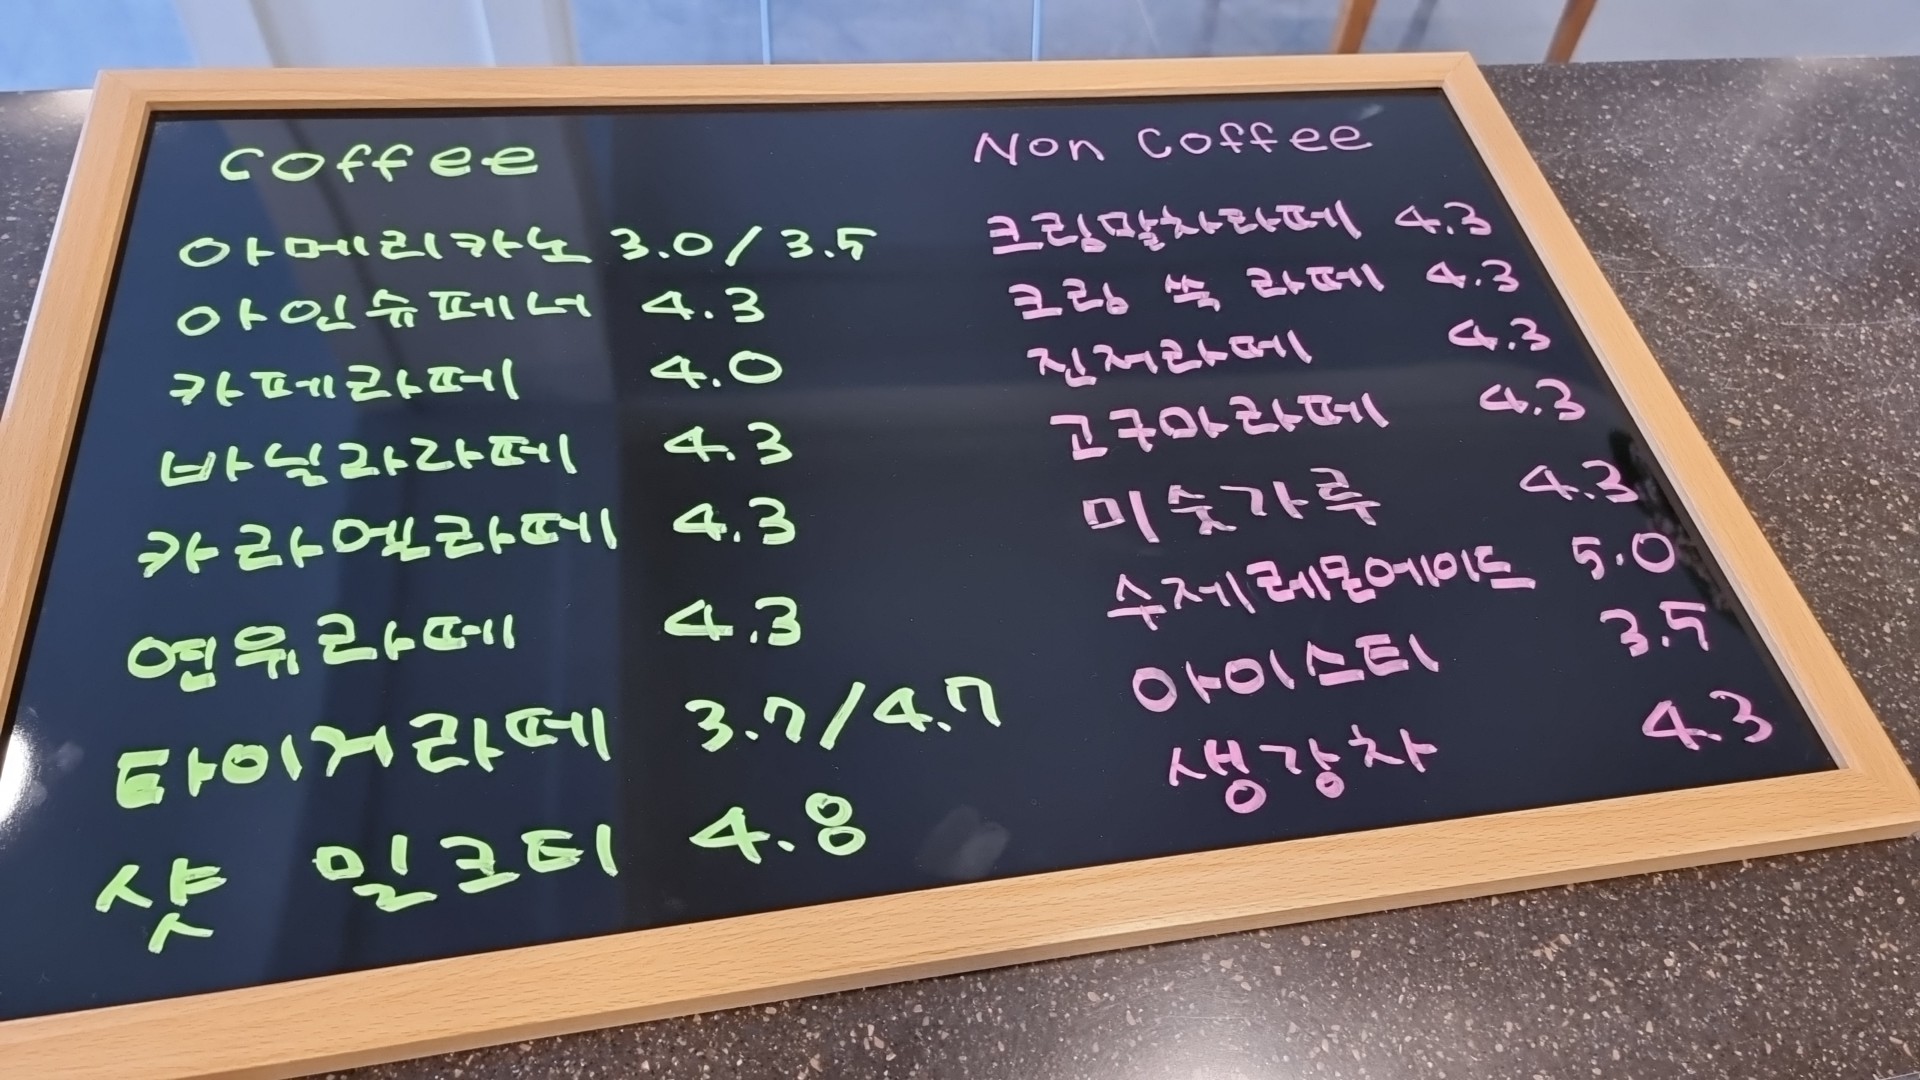 Coffee
아메리카노 3.0/3.5
아인슈페너 4.3
카페라떼 4.0
바닐라라떼 4.3
카라멜라떼 4.3
연유라떼 4.3
타이거라떼 3.7/4.7
샷 밀크티 4.8
Non Coffee
크림말차라떼 4.3
크림 쑥 라떼 4.3
진저라떼 4.3
고구마라떼 4.3
미숫가루 4.3
수제레몬에이드 5.0
아이스티 3.5
생강차 4.3